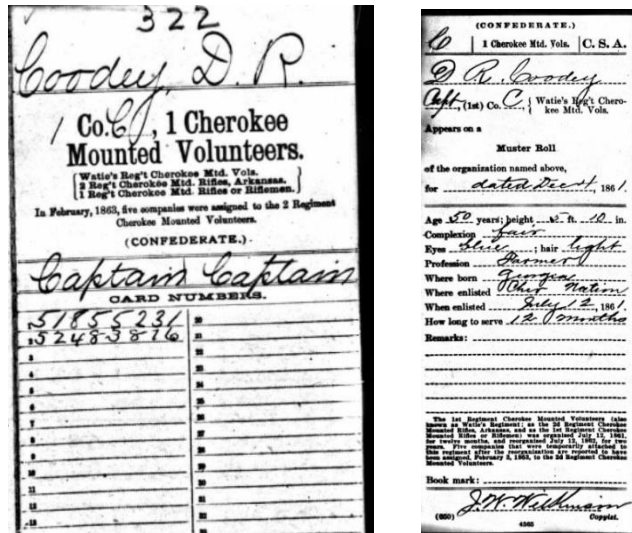 322
Coodey, D. R.
1 Co. C, 1 Cherokee
Mounted Volunteers.
Watie's Reg't Cherokee Mtd. Vols.
2 Reg't Cherokee Mtd. Rifles, Arkansas.
1 Reg't Cherokee Mtd. Rifles or Riflemen.
In February, 1863, five companies were assigned to the 2 Regiment
Cherokee Mounted Volunteers.
(CONFEDERATE.)
Captain Captain
CARD NUMBERS.
1 51855231 20
2 52483816 21
3
4
5
6
7
8
9
10
11
12
(CONFEDERATE.)
C 1 Cherokee Mtd. Vols. C. S. A.
D R. Coodey
Capt, (1st) Co. C, Watie's Reg't Chero-
kee Mtd. Vols.
Appears on a
Muster Roll
of the organization named above,
for dated Dec 4, 1861.
Age 50 years; height ft. 10 in.
Complexion fair
Eyes blue; hair light
Profession Farmer
Where born Georgia
Where enlisted Cher Nation
When enlisted July 12, 1861.
How long to serve 12 Months
Remarks:
The 1st Regiment Cherokee Mounted Volunteers (also
known as Watie's Regiment; as the 2d Regiment Cherokee
Mounted Rifles, Arkansas, and as the 1st Regiment Cherokee
Mounted Rifles or Riflemen) was organized July 12, 1861,
for twelve months, and reorganized July 12, 1862, for two
years. Five companies that were temporarily attached to
this regiment after the reorganization are reported to have
been assigned, February 3, 1863, to the 2d Regiment Cherokee
Mounted Volunteers.
Book mark:
J. W. Wilkinson
(650) Copyist.
4565